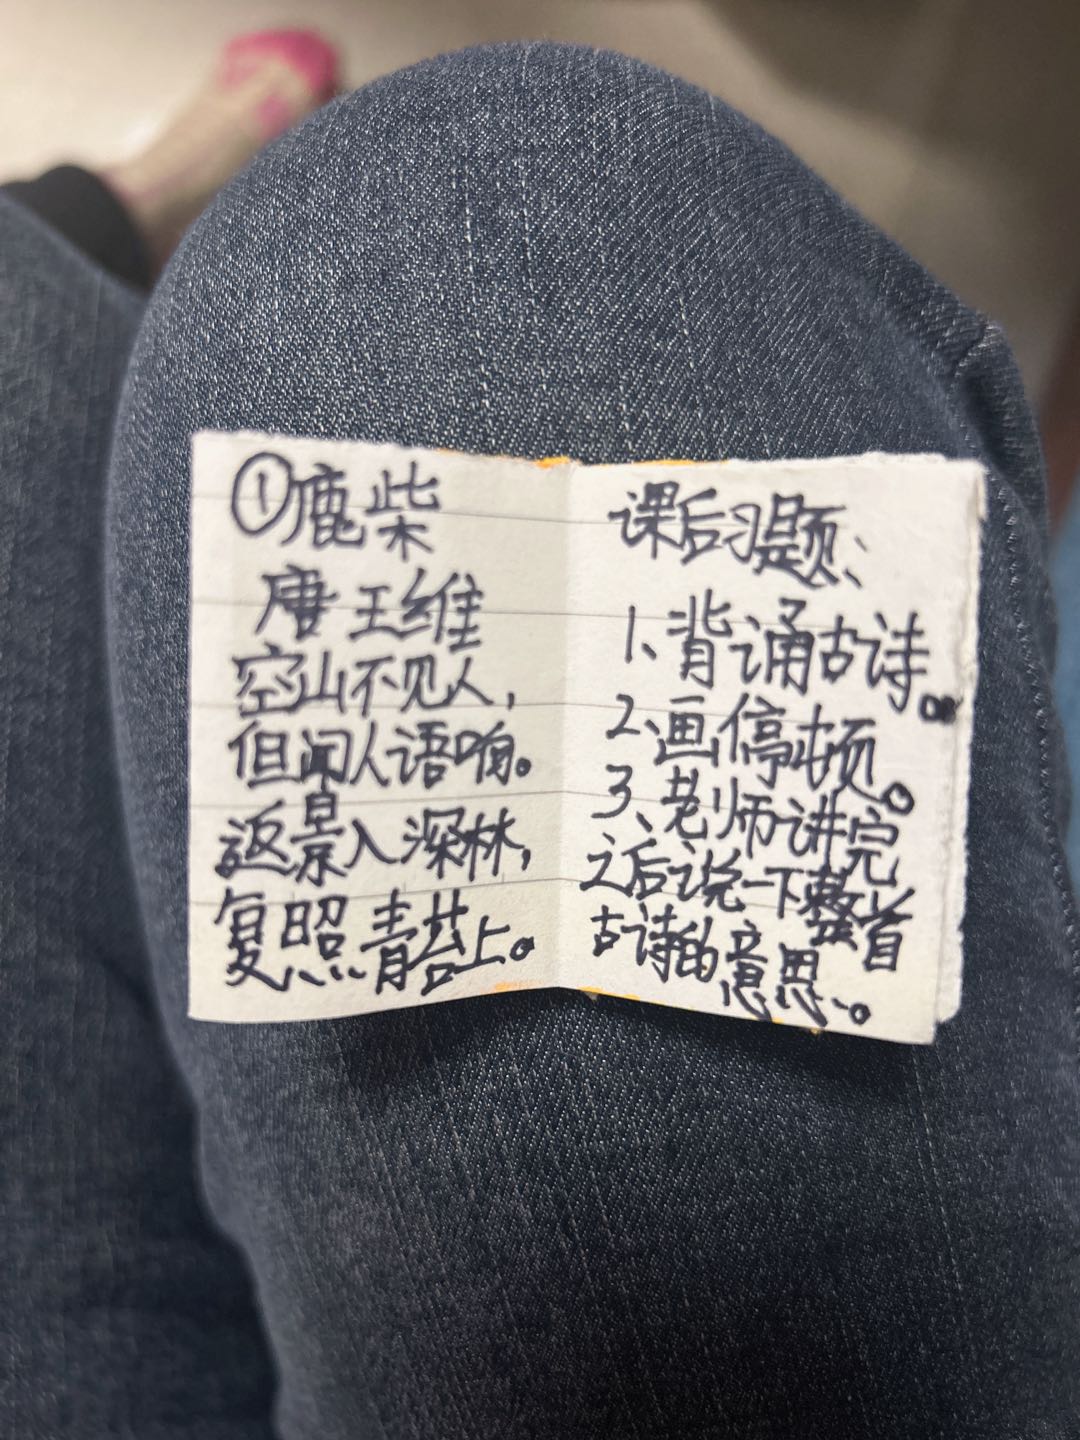 ①鹿柴
唐 王维
空山不见人，
但闻人语响。
返景入深林，
复照青苔上。
课后习题：
1、背诵古诗。
2、画停顿。
3、老师讲完
之后说一下整首
古诗的意思。